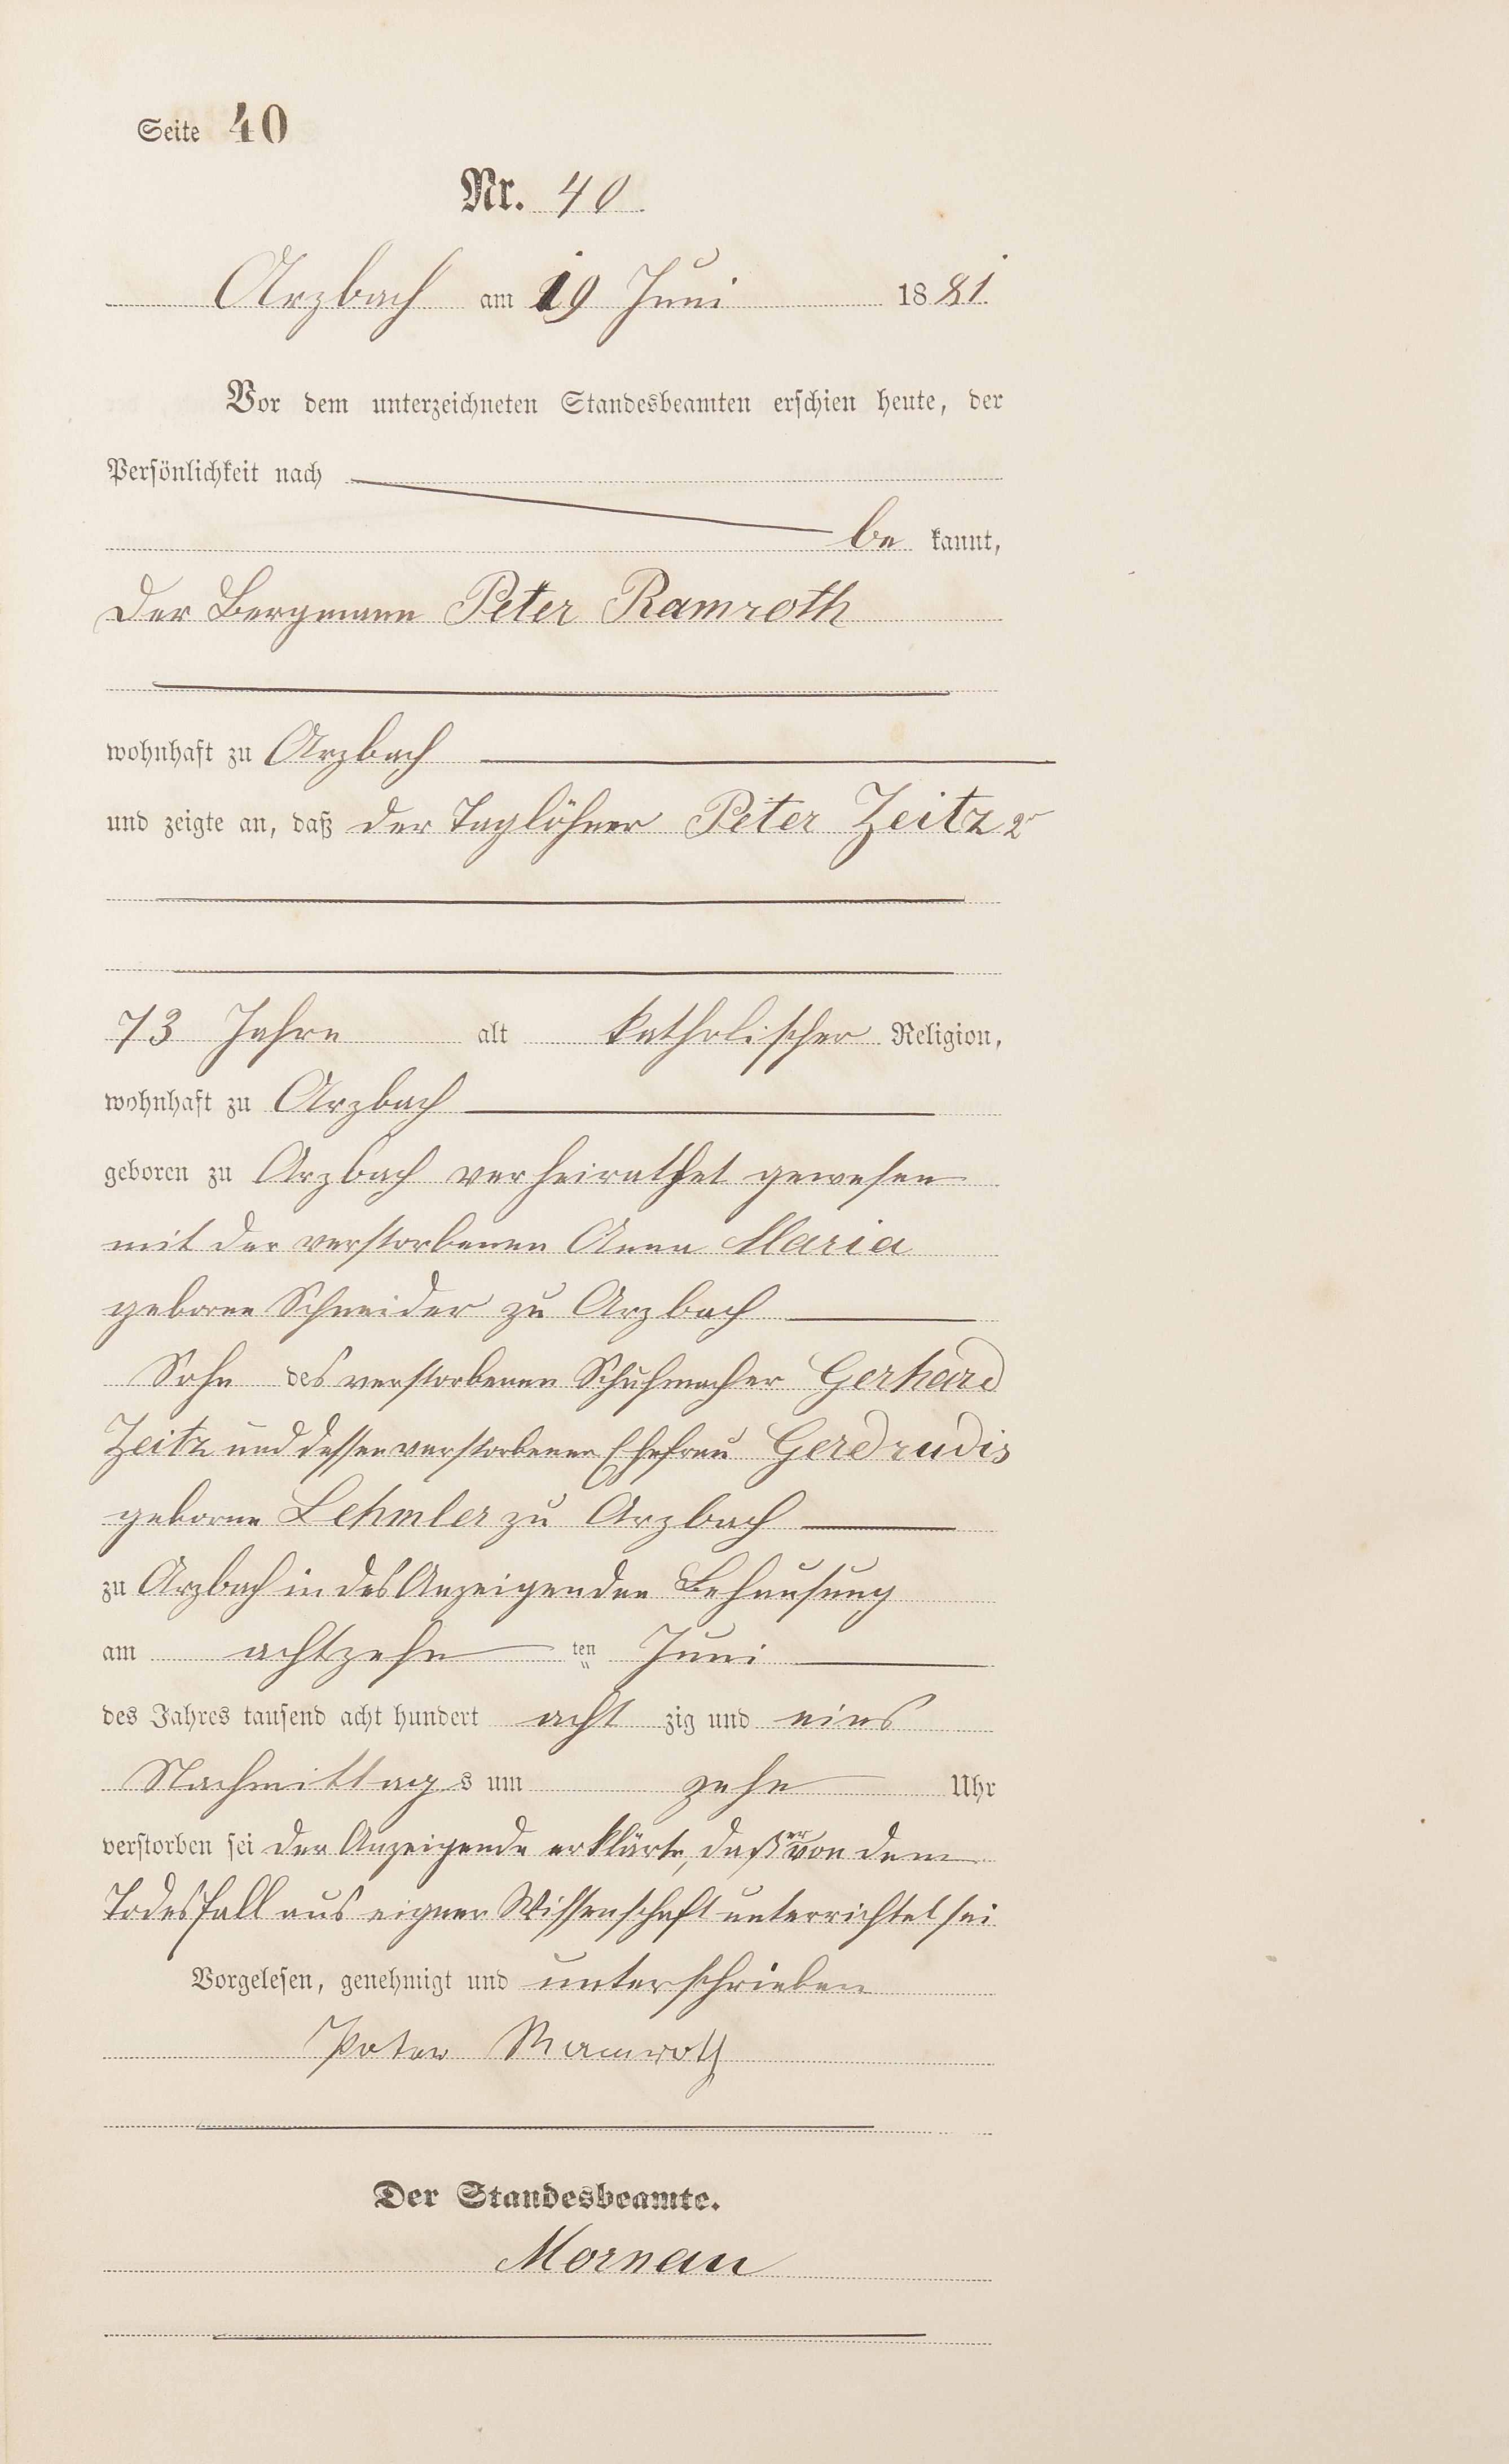 Seite 40
Nr. 40
Arzbach am 19 Juni 1881
Vor dem unterzeichneten Standesbeamten erschien heute, der
Persönlichkeit nach
be kannt,
der Bergmann Peter Ramroth
wohnhaft zu Arzbach
und zeigte an, daß der Taglöhner Peter Zeitz 2r
73 Jahre alt katholischer Religion,
wohnhaft zu Arzbach
geboren zu Arzbach verheirathet gewesen
mit der verstorbenen Anna Maria
geborne Schneider zu Arzbach
Sohn des verstorbenen Schuhmacher Gerhard
Zeitz und dessen verstorbenen Ehefrau Gerdrudis
geborne Lehmler zu Arzbach
zu Arzbach in des Anzeigenden Behausung
am achtzehn ten Juni
des Jahres tausend acht hundert acht zig und eins
Nachmittags um zehn Uhr
verstorben sei der Anzeigende erklärte, daß er von dem
Todesfall aus eigner Wissenschaft unterrichtet sei
Vorgelesen, genehmigt und unterschrieben
Peter Ramroth
Der Standesbeamte.
Mornau